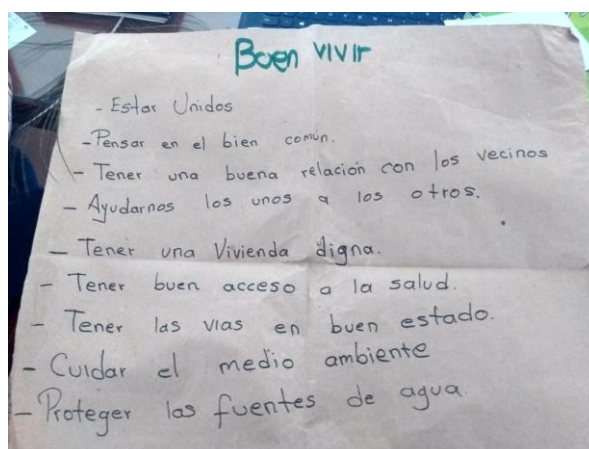 Buen vivir
- Estar Unidos
- Pensar en el bien común.
- Tener una buena relación con los vecinos
- Ayudarnos los unos a los otros.
- Tener una Vivienda digna.
- Tener buen acceso a la salud.
- Tener las vias en buen estado.
- Cuidar el medio ambiente
- Proteger las fuentes de agua.